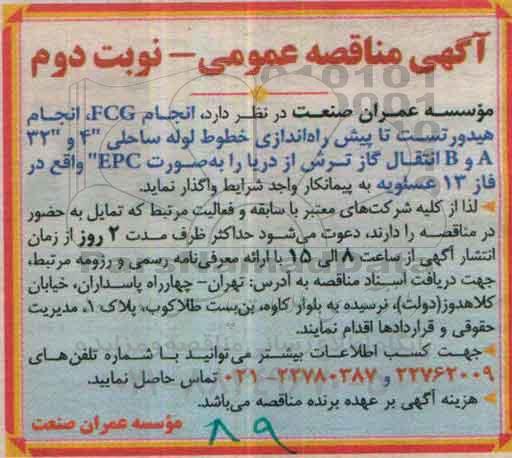 آگهی مناقصه عمومی – نوبت دوم
مؤسسه عمران صنعت در نظر دارد، انجام FCG، انجام
هیدروتست تا پیش راه‌اندازی خطوط لوله ساحلی "۴ و "۳۲
A و B انتقال گاز ترش از دریا را به‌صورت "EPC" واقع در
فاز ۱۳ عسلویه به پیمانکار واجد شرایط واگذار نماید.
لذا از کلیه شرکت‌های معتبر با سابقه و فعالیت مرتبط که تمایل به حضور
در مناقصه را دارند، دعوت می‌شود حداکثر ظرف مدت ۲ روز از زمان
انتشار آگهی از ساعت ۸ الی ۱۵ با ارائه معرفی‌نامه رسمی و رزومه مرتبط،
جهت دریافت اسناد مناقصه به آدرس: تهران- چهارراه پاسداران، خیابان
کلاهدوز(دولت)، نرسیده به بلوار کاوه، بن‌بست طلاکوب، پلاک ۱، مدیریت
حقوقی و قراردادها اقدام نمایند.
جهت کسب اطلاعات بیشتر می‌توانید با شماره تلفن‌های
۲۲۷۶۲۰۰۹ و ۲۲۷۸۰۳۸۷-۰۲۱ تماس حاصل نمایید.
هزینه آگهی بر عهده برنده مناقصه می‌باشد.
مؤسسه عمران صنعت
۸۹